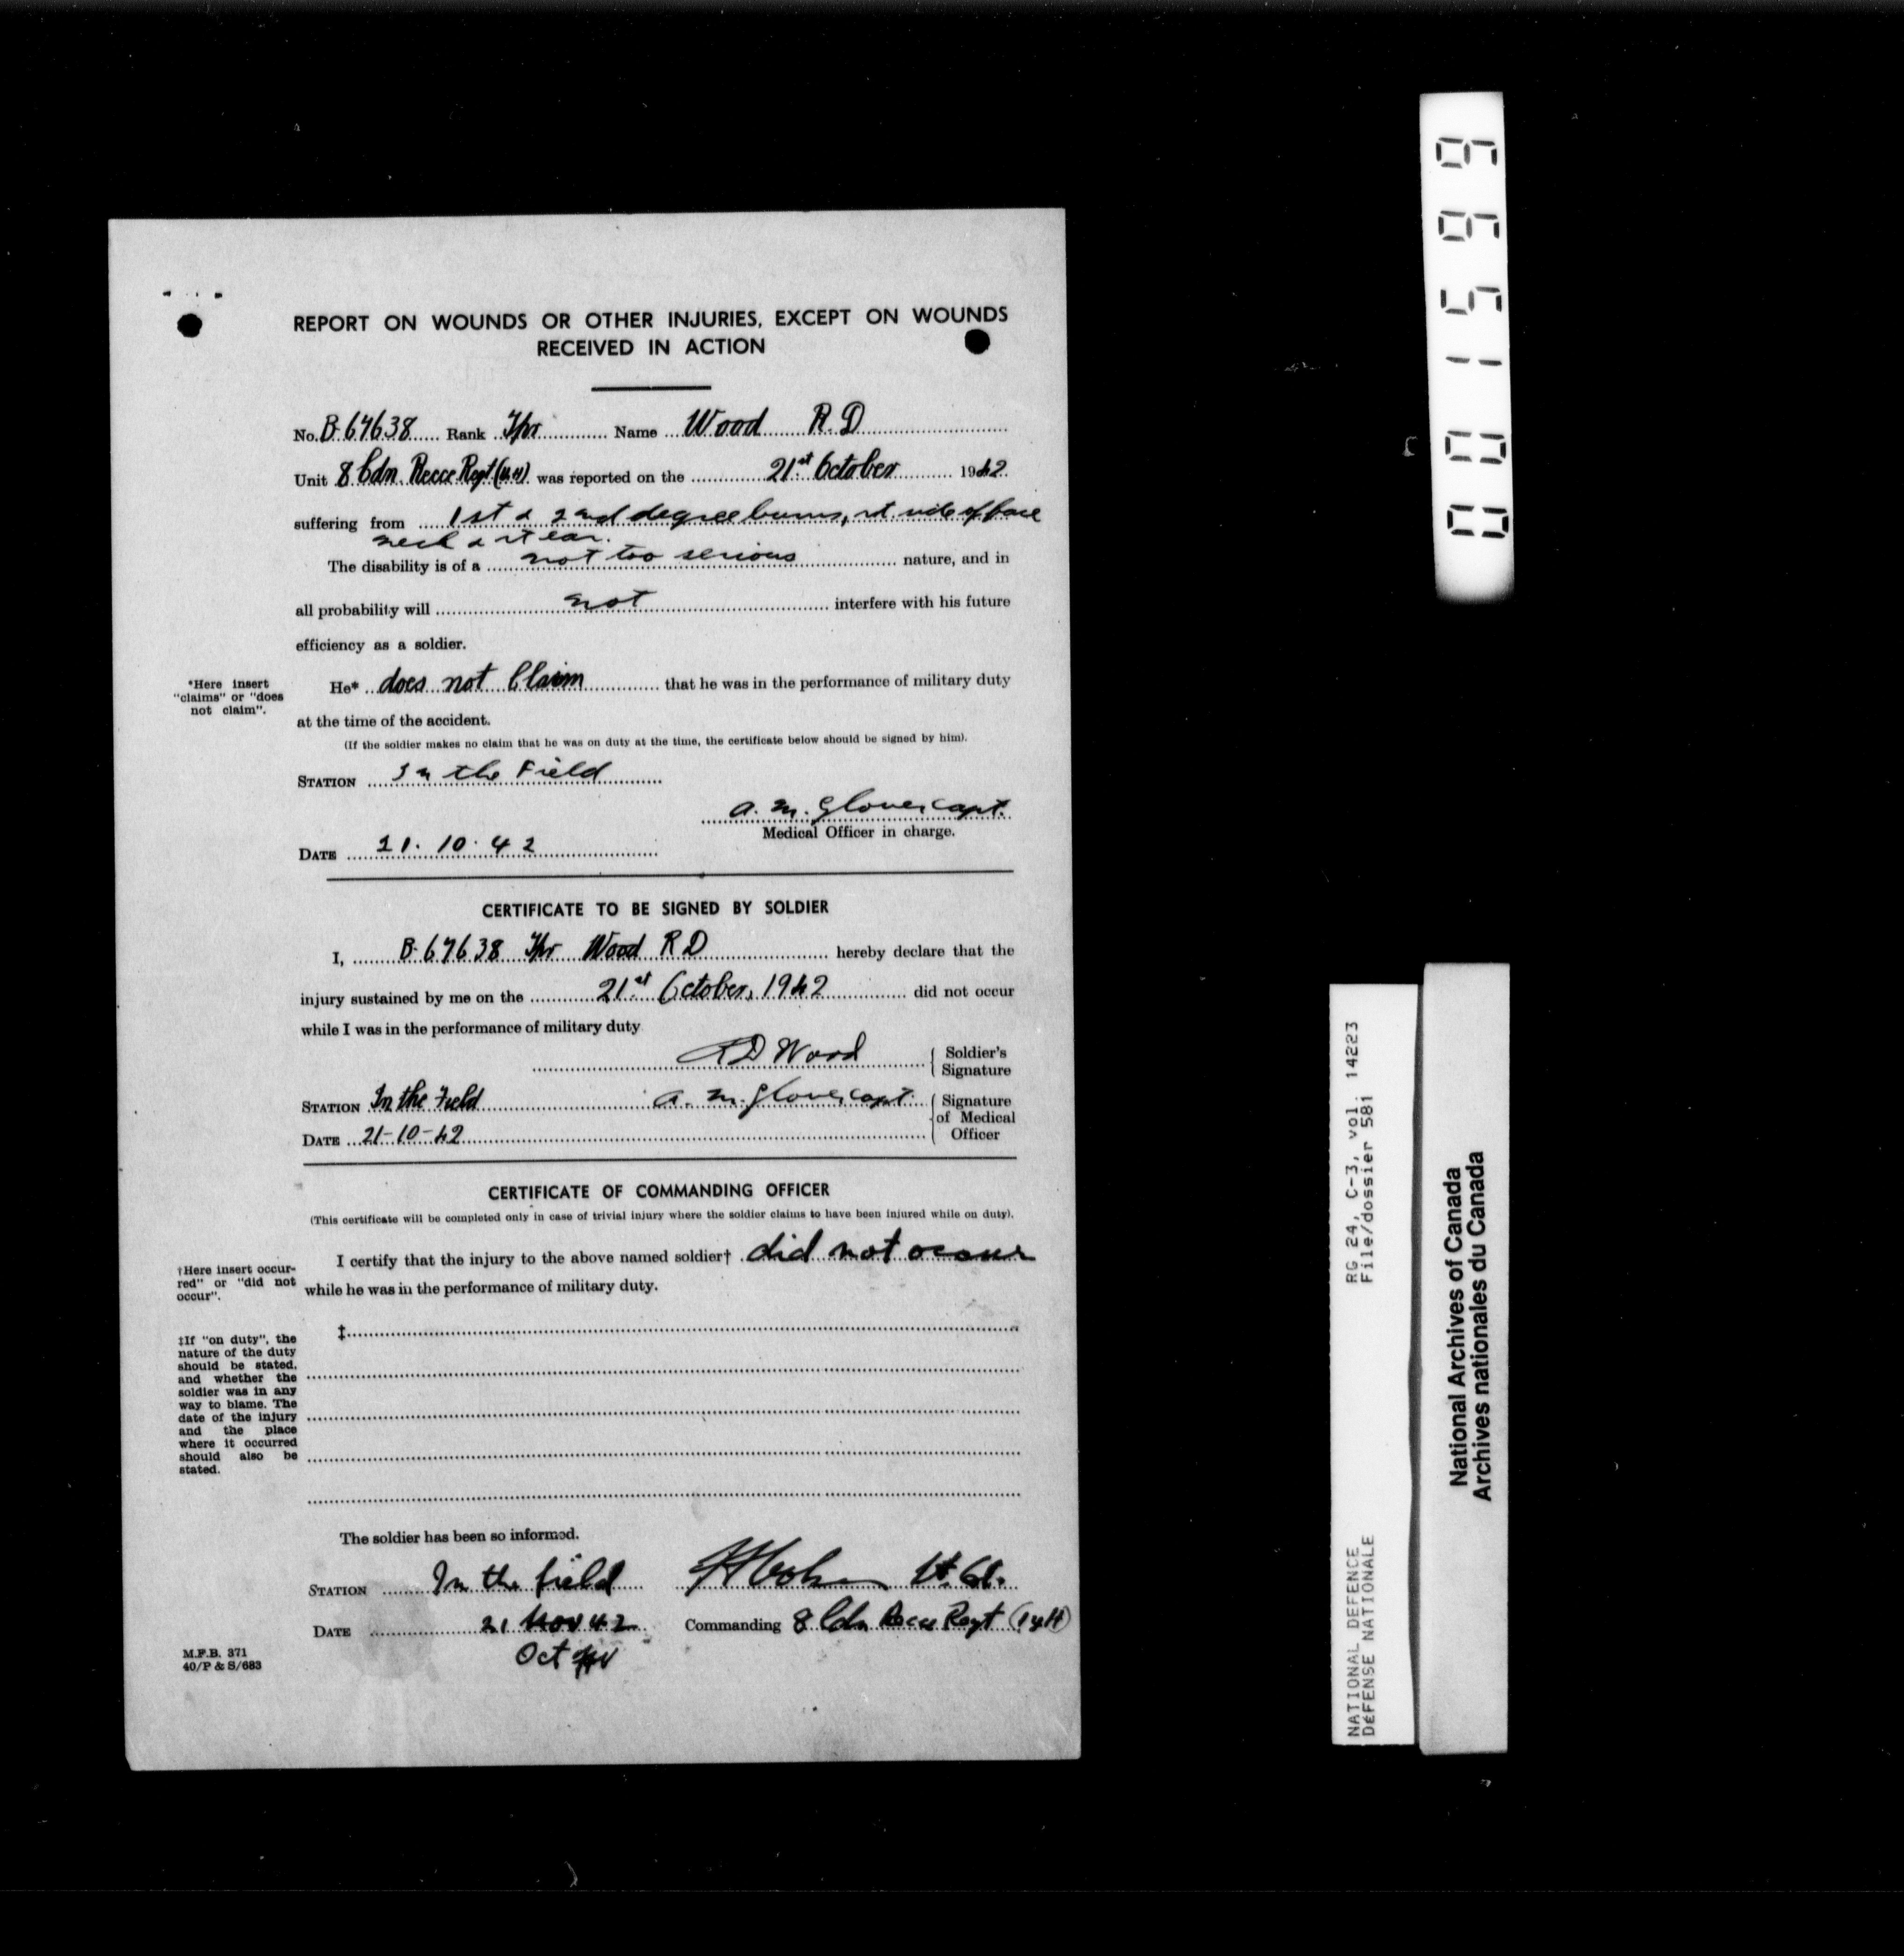 REPORT ON WOUNDS OR OTHER INJURIES, EXCEPT ON WOUNDS
RECEIVED IN ACTION
No. B.67638 Rank Tpr Name Wood R. D
Unit 8 Cdn. Recce Regt was reported on the 21st October 1942
suffering from 1st & 2nd degree burns, rt. side of face
neck & rt ear.
The disability is of a not too serious nature, and in
all probability will not interfere with his future
efficiency as a soldier.
*Here insert
"claims" or "does
not claim".
He* does not Claim that he was in the performance of military duty
at the time of the accident.
(If the soldier makes no claim that he was on duty at the time, the certificate below should be signed by him).
STATION In the Field
A. M. Glover Capt.
Medical Officer in charge.
DATE 21. 10. 42
CERTIFICATE TO BE SIGNED BY SOLDIER
I, B.67638 Tpr Wood R D hereby declare that the
injury sustained by me on the 21st October, 1942 did not occur
while I was in the performance of military duty
RD Wood Soldier's
Signature
STATION In the Field A. M. Glover Capt. Signature
of Medical
Officer
DATE 21-10-42
CERTIFICATE OF COMMANDING OFFICER
(This certificate will be completed only in case of trivial injury where the soldier claims to have been injured while on duty).
I certify that the injury to the above named soldier† did not occur
while he was in the performance of military duty.
†Here insert occur-
red" or "did not
occur".
‡
‡If "on duty", the
nature of the duty
should be stated,
and whether the
soldier was in any
way to blame. The
date of the injury
and the place
where it occurred
should also be
stated.
The soldier has been so informed.
STATION In the field Lt. Col.
DATE 21 Nov 42 Commanding 8 Cdn Recce Regt (14H)
Oct
M.F.B. 371
40/P & S/683
001599
RG 24, C-3, vol. 14223
File/dossier 581
NATIONAL DEFENCE
DÉFENSE NATIONALE
National Archives of Canada
Archives nationales du Canada